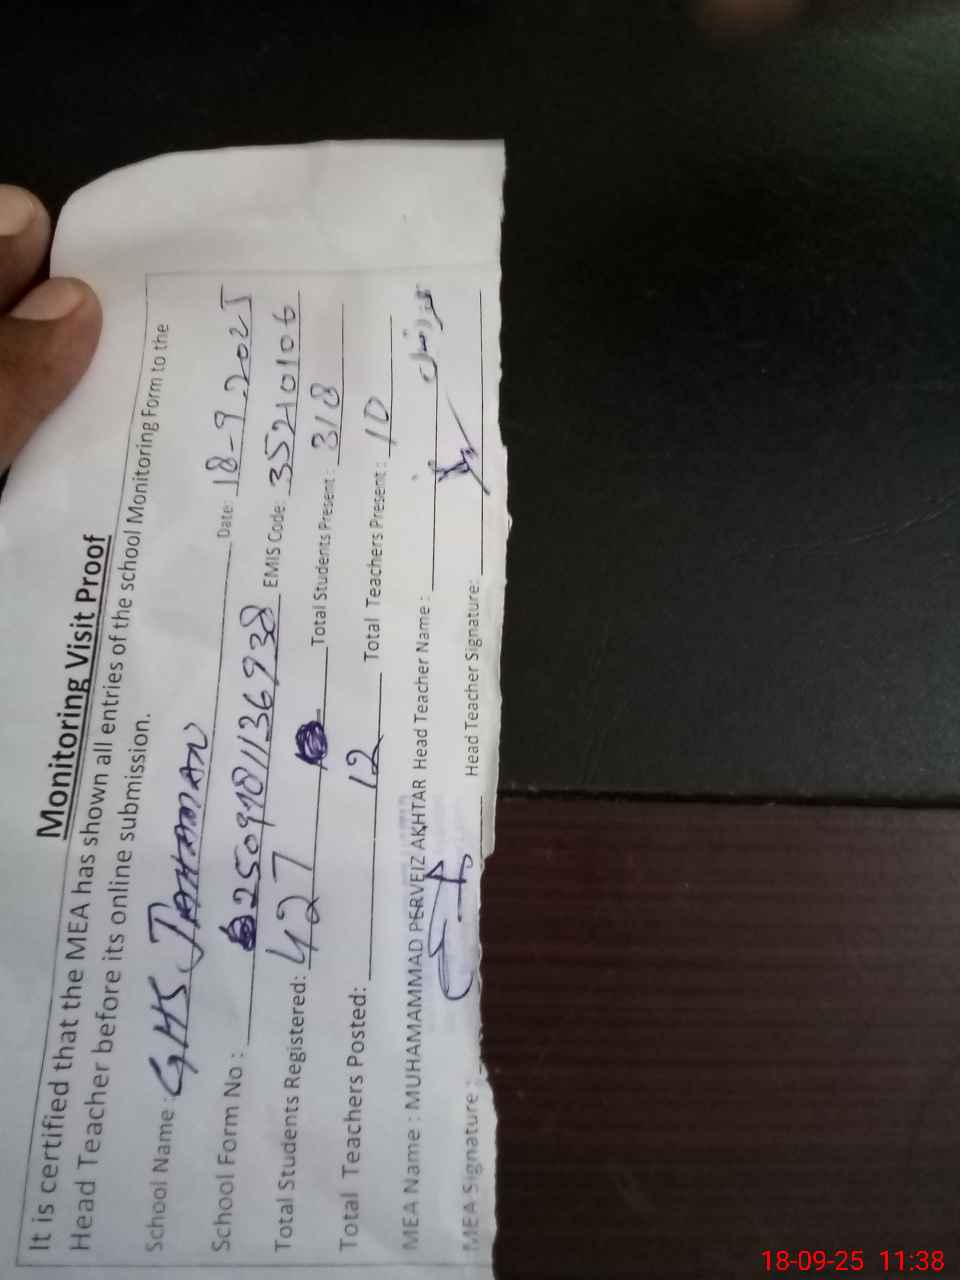 Monitoring Visit Proof
It is certified that the MEA has shown all entries of the school Monitoring Form to the
Head Teacher before its online submission.
School Name : GHS JAHAMAN Date: 18-9-2025
School Form No : 2509181136938 EMIS Code: 35210106
Total Students Registered: 427 Total Students Present : 318
Total Teachers Posted: 12 Total Teachers Present : 10
MEA Name : MUHAMAMMAD PERVEIZ AKHTAR Head Teacher Name :
MEA Signature : Head Teacher Signature:
18-09-25 11:38